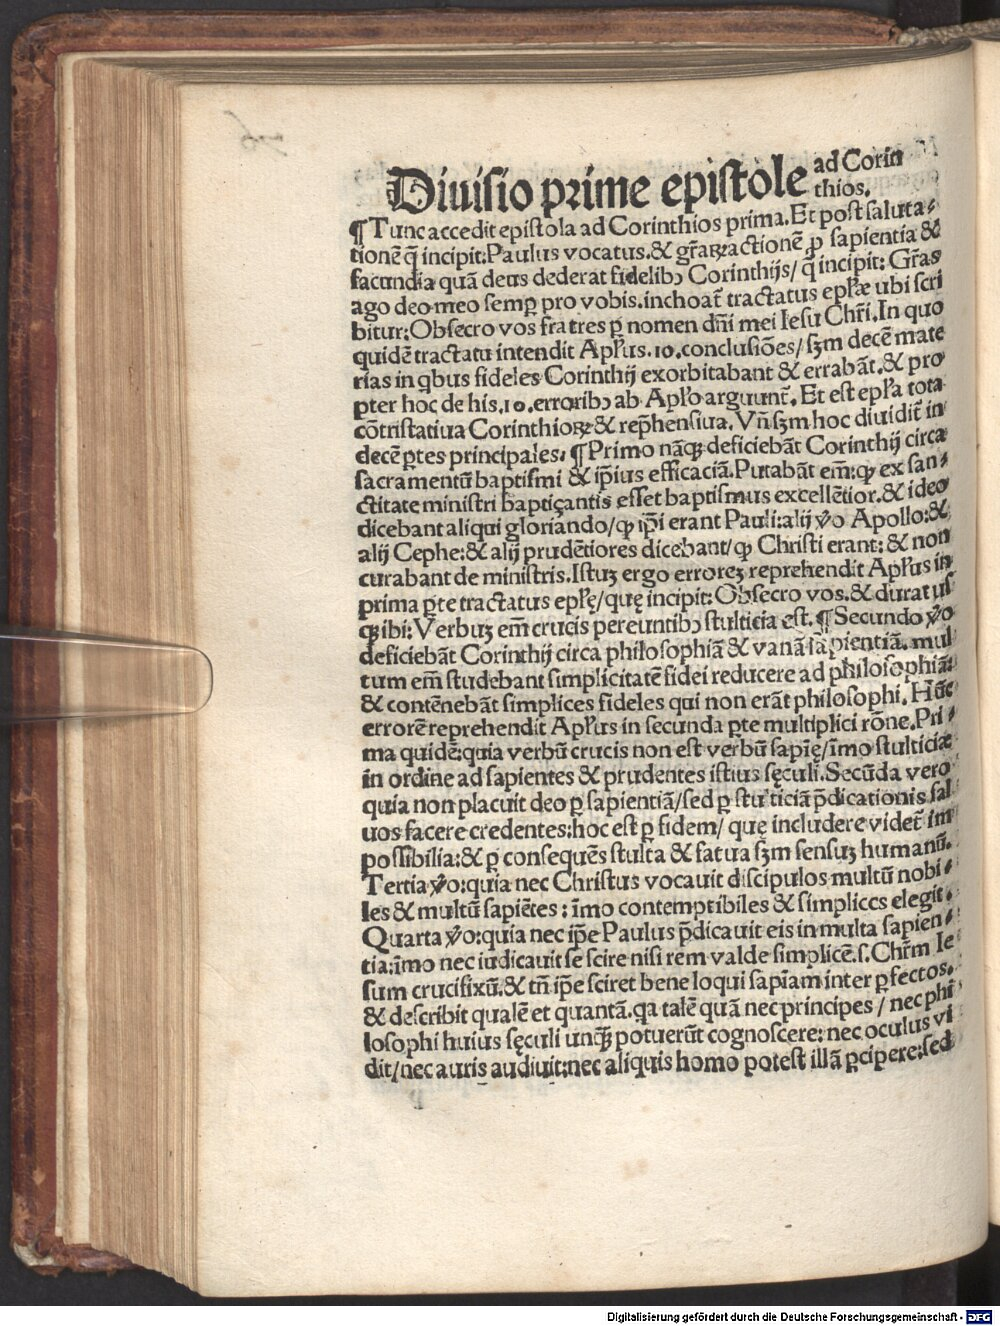 Diuisio prime epistole ad Corin
thios.
¶Tunc accedit epistola ad Corinthios prima. Et post saluta⸗
tionẽ q̃ incipit: Paulus vocatus. & gr̃aꝝ actionẽ ꝓ sapientia &
facundia quã deus dederat fidelibꝫ Corinthijs/ q̃ incipit: Gr̃as
ago deo meo semꝑ pro vobis. inchoat̃ tractatus epl̃æ ubi scri
bitur: Obsecro vos fratres ꝑ nomen dñi mei Iesu Chr̃i. In quo
quidẽ tractatu intendit Apl̃us .10. conclusiões/ sꝫm decẽ mate
rias in qbus fideles Corinthij exorbitabant & errabãt. & pro
pter hoc de his .10. erroribꝫ ab Apl̃o arguunt̃. Et est epl̃a tota
cõtristatiua Corinthioꝝ & rep̃hensiua. Vñ sꝫm hoc diuidit̃ in
decẽ ꝑtes principales. ¶Primo nãqꝫ deficiebãt Corinthij circa
sacramentũ baptismi & ip̃ius efficaciã. Putabãt em̃: ꝙ ex san⸗
ctitate ministri baptiçantis esset baptismus excellẽtior. & ideo
dicebant aliqui gloriando/ ꝙ ip̃i erant Pauli: alij v̊o Apollo: &
alij Cephe: & alij prudẽtiores dicebant/ ꝙ Christi erant: & non
curabant de ministris. Istuꝫ ergo erroreꝫ reprehendit Apl̃us in
prima ꝑte tractatus epl̃ę/ quę incipit: Obsecro vos. & durat us
qꝫ ibi: Verbuꝫ em̃ crucis pereuntibꝫ stulticia est. ¶Secundo v̊o
deficiebãt Corinthij circa philosophiã & vanã sapientiã. mul
tum em̃ studebant simplicitatẽ fidei reducere ad philosophiã:
& contẽnebãt simplices fideles qui non erãt philosophi. Hũc
errorẽ reprehendit Apl̃us in secunda ꝑte multiplici rõne. Pri⸗
ma quidẽ: quia verbũ crucis non est verbũ sapię̃/ ĩmo stulticiæ
in ordine ad sapientes & prudentes istius sęculi. Secũda vero
quia non placuit deo ꝑ sapientiã/ sed ꝑ stulticiã p̃dicationis sal
uos facere credentes: hoc est ꝑ fidem/ quę includere videt̃ im
possibilia: & ꝑ consequẽs stulta & fatua sꝫm sensuꝫ humanũ.
Tertia v̊o: quia nec Christus vocauit discipulos multũ nobi⸗
les & multũ sapiẽtes: ĩmo contemptibiles & simplices elegit.
Quarta v̊o: quia nec ip̃e Paulus p̃dicauit eis in multa sapien⸗
tia: ĩmo nec iudicauit se scire nisi rem valde simplicẽ. s. Chr̃m Ie
sum crucifixũ. & tñ ip̃e sciret bene loqui sapiãm inter ꝑfectos.
& describit qualẽ et quantã. qa talẽ quã nec principes/ nec phi
losophi huius sęculi unqꝫ̃ potuerũt cognoscere: nec oculus vi
dit/ nec auris audiuit: nec aliquis homo potest illã ꝑcipere: sed
Digitalisierung gefördert durch die Deutsche Forschungsgemeinschaft - DFG